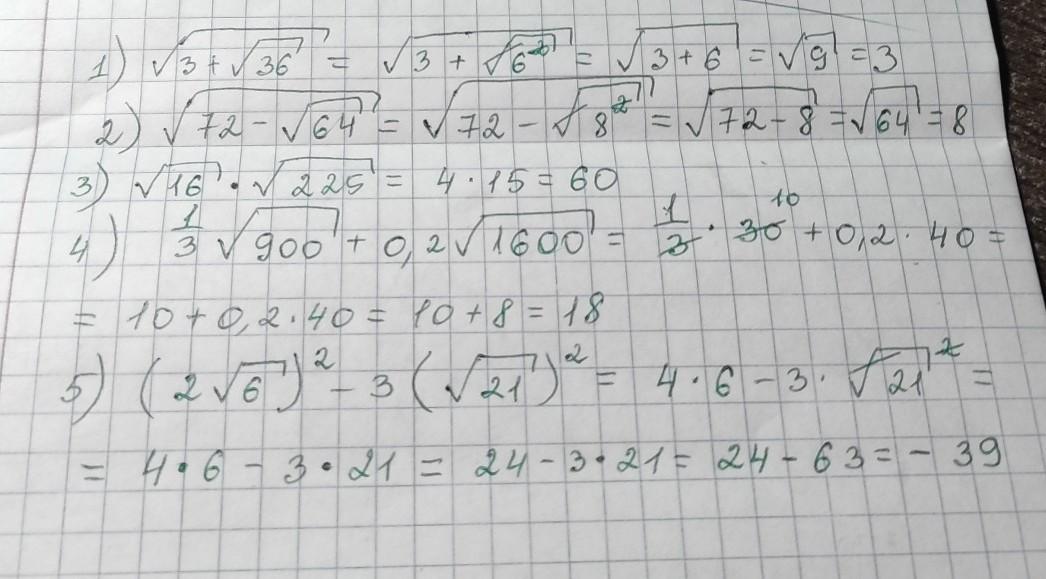 1) √(3 + √36) = √(3 + √6²) = √(3 + 6) = √9 = 3
2) √(72 - √64) = √(72 - √8²) = √(72 - 8) = √64 = 8
3) √16 · √225 = 4 · 15 = 60
4) 1/3 √900 + 0,2 √1600 = 1/3 · 30 10 + 0,2 · 40 =
= 10 + 0,2 · 40 = 10 + 8 = 18
5) (2√6)² - 3 (√21)² = 4 · 6 - 3 · √21² =
= 4 · 6 - 3 · 21 = 24 - 3 · 21 = 24 - 63 = - 39